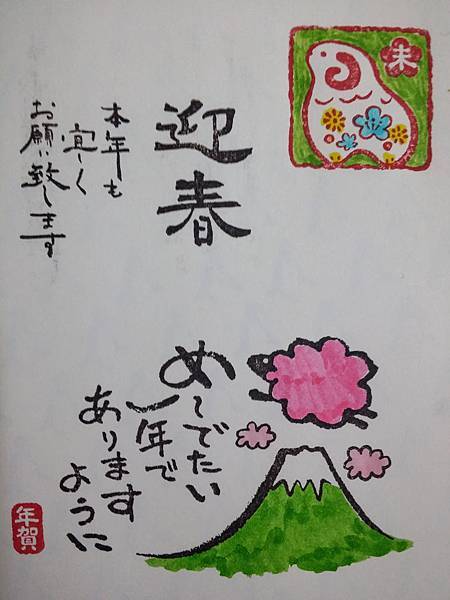 未
迎春
本年も
宜しく
お願い致します
め〜でたい
一年で
あります
ように
年賀